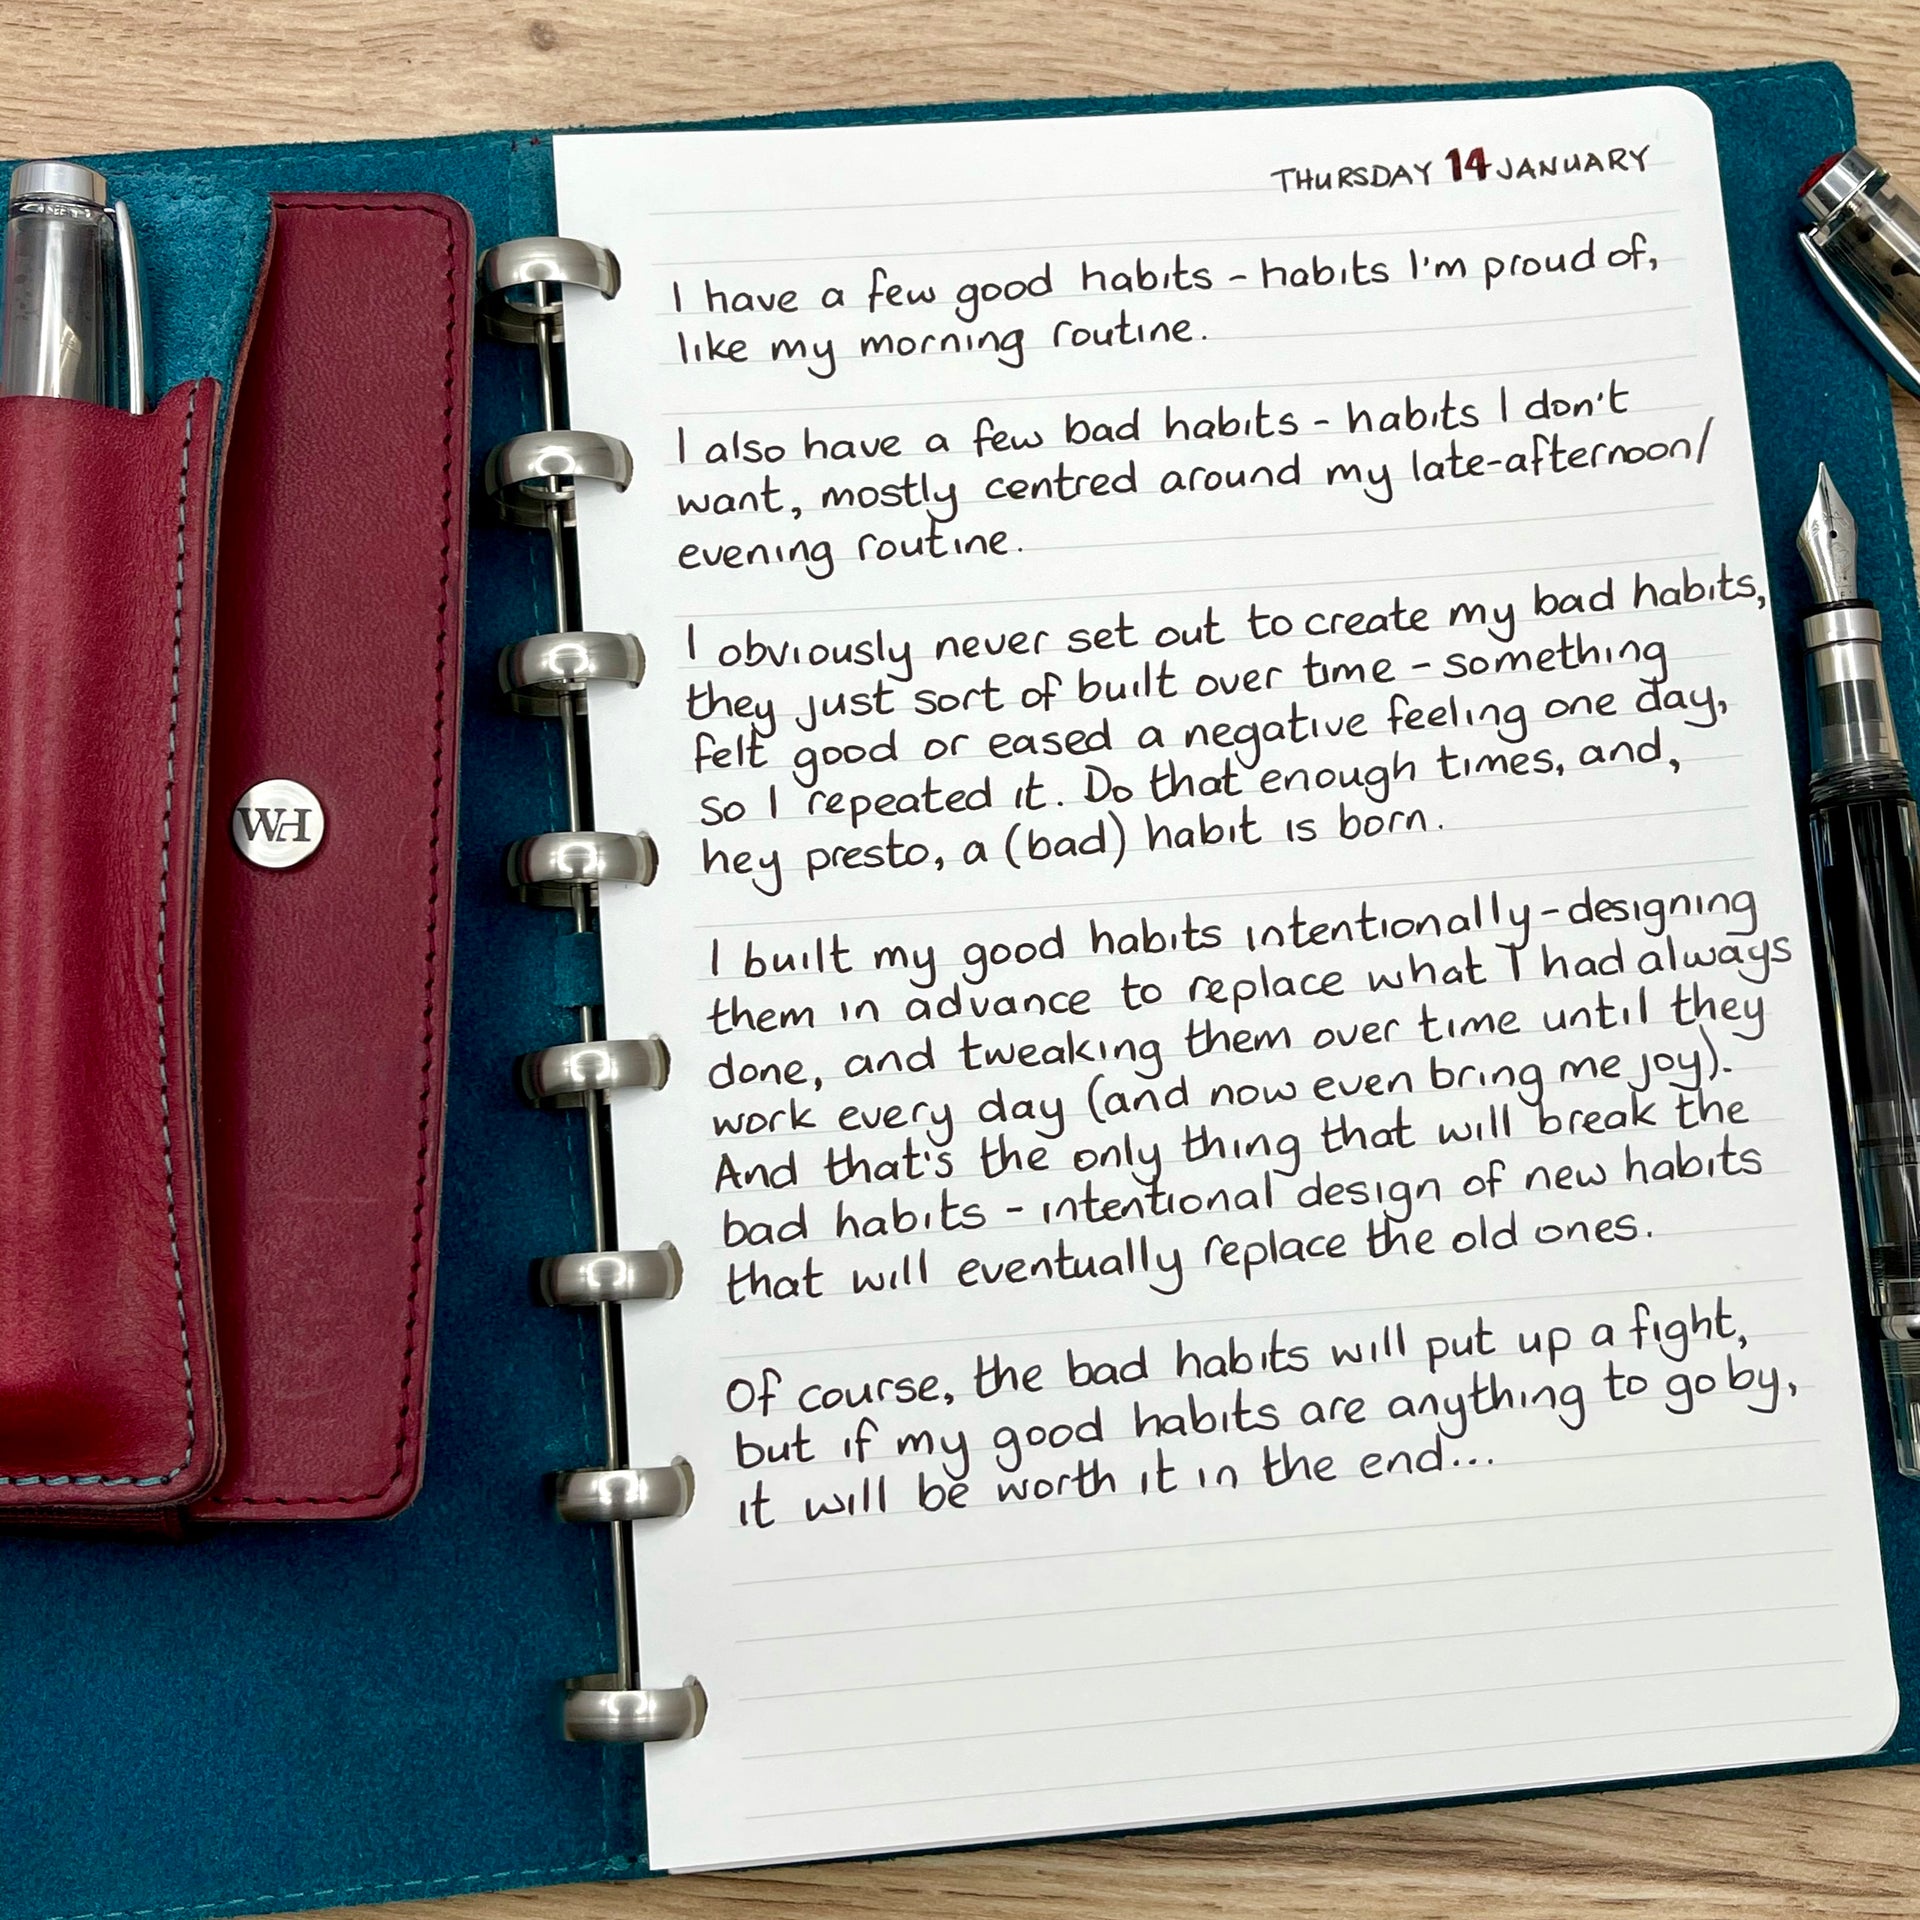 THURSDAY 14 JANUARY
I have a few good habits - habits I'm proud of,
like my morning routine.
I also have a few bad habits - habits I don't
want, mostly centred around my late-afternoon/
evening routine.
I obviously never set out to create my bad habits,
they just sort of built over time - something
felt good or eased a negative feeling one day,
so I repeated it. Do that enough times, and,
hey presto, a (bad) habit is born.
I built my good habits intentionally - designing
them in advance to replace what I had always
done, and tweaking them over time until they
work every day (and now even bring me joy).
And that's the only thing that will break the
bad habits - intentional design of new habits
that will eventually replace the old ones.
Of course, the bad habits will put up a fight,
but if my good habits are anything to go by,
it will be worth it in the end...
WH